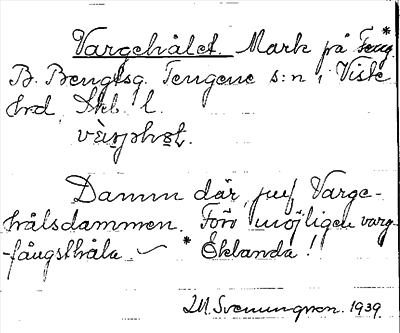 Vargehålet. Mark på Teng.*
B. Bengtsg. Tengene s:n, Viste
hrd, Skb. l.

Damm där, jmf Varge-
hålsdammen. Förr möjligen varg-
fångsthåla. * Eklanda!
M. Svenungson. 1939.